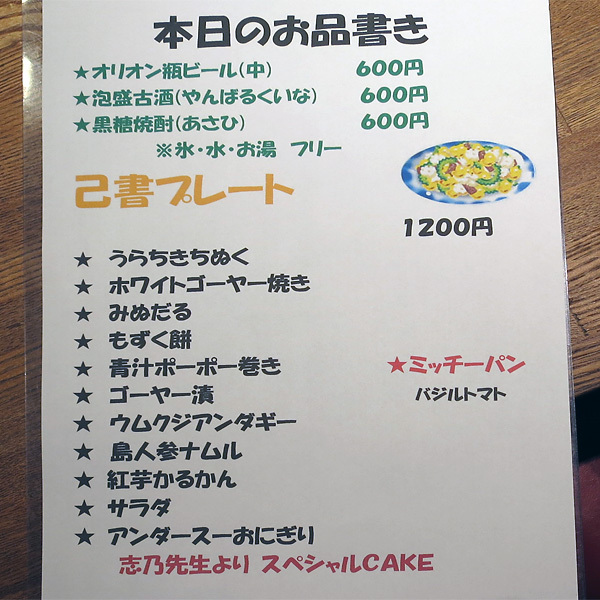 本日のお品書き
★オリオン瓶ビール(中) 600円
★泡盛古酒(やんばるくいな) 600円
★黒糖焼酎(あさひ) 600円
※氷・水・お湯 フリー
己書プレート
1200円
★ うらちきちぬく
★ ホワイトゴーヤー焼き
★ みぬだる
★ もずく餅
★ 青汁ポーポー巻き ★ミッチーパン
★ ゴーヤー漬 バジルトマト
★ ウムクジアンダギー
★ 島人参ナムル
★ 紅芋かるかん
★ サラダ
★ アンダースーおにぎり
志乃先生より スペシャルCAKE